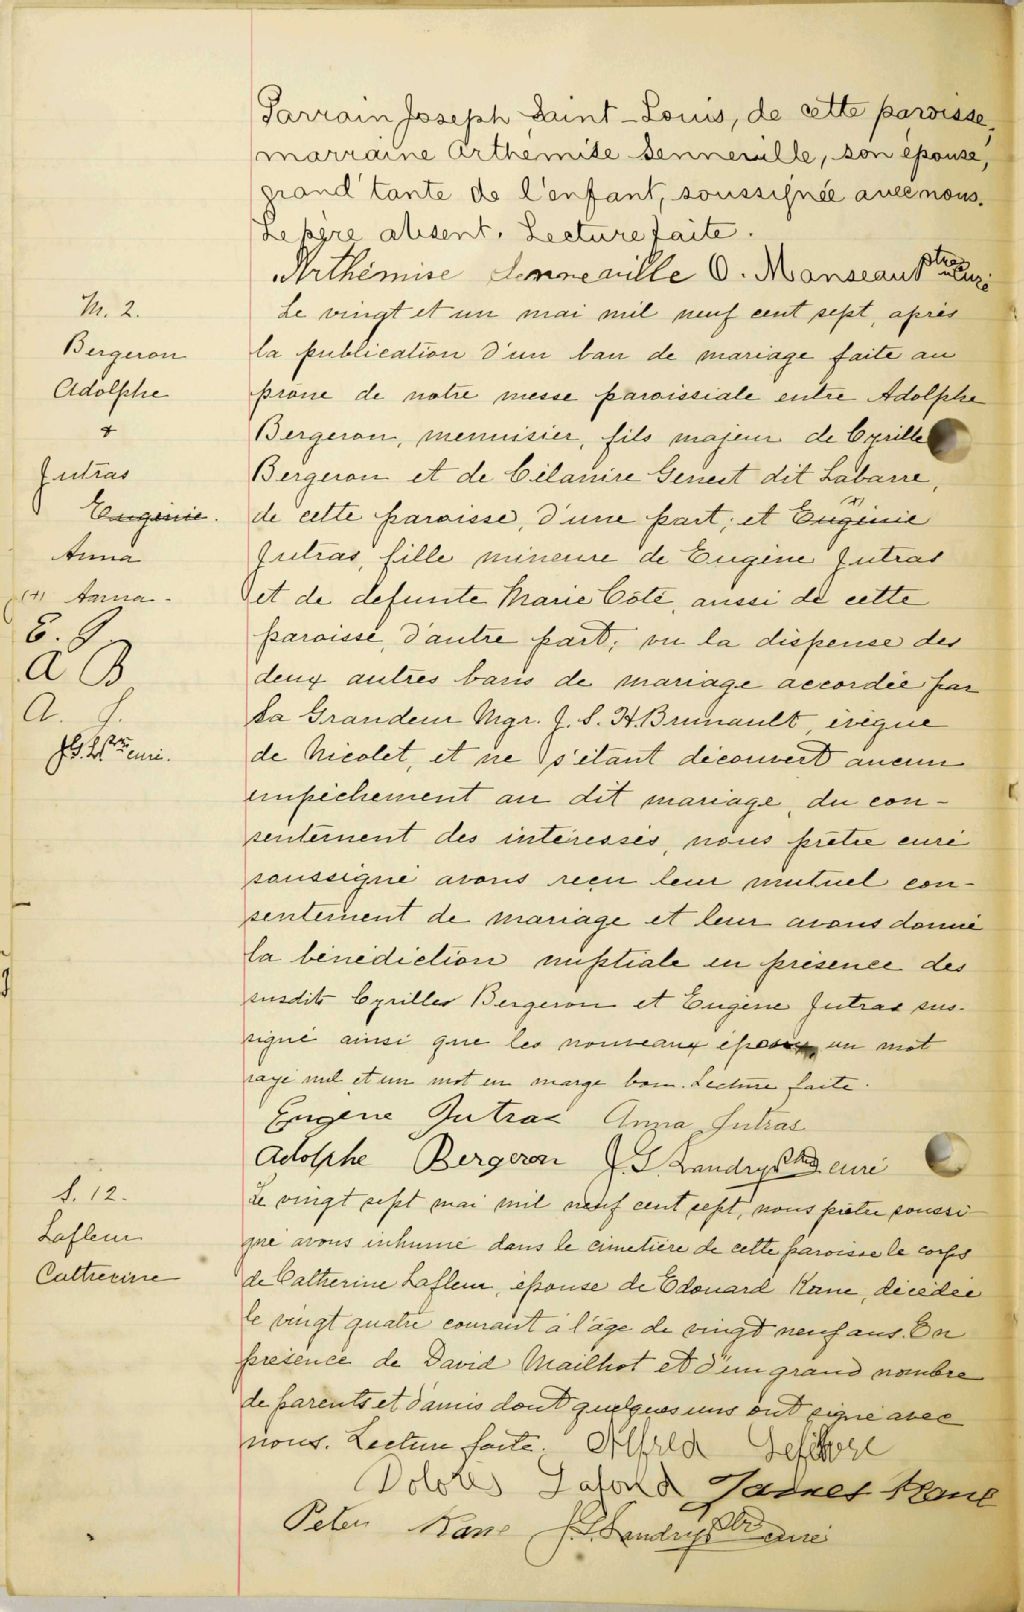 Parrain Joseph Saint-Louis, de cette paroisse,
marraine Arthémise Senneville, son épouse,
grand'tante de l'enfant, soussignée avec nous.
Le père absent. Lecture faite.
Arthémise Senneville O. Manseau ptre curé
M. 2.
Bergeron
Adolphe
&
Jutras
Eugénie.
Anna
(+) Anna -
E. J.
A B
A. J.
J.G.L. ptre curé.
Le vingt et un mai mil neuf cent sept, après
la publication d'un ban de mariage faite au
prône de notre messe paroissiale entre Adolphe
Bergeron, menuisier, fils majeur de Cyrille
Bergeron et de Célanire Genest dit Labarre,
de cette paroisse, d'une part; et Eugénie (+)
Jutras, fille mineure de Eugène Jutras
et de defunte Marie Côté, aussi de cette
paroisse, d'autre part; vu la dispense des
deux autres bans de mariage accordée par
Sa Grandeur Mgr. J. S. H. Brunault, évêque
de Nicolet, et ne s'étant découvert aucun
empêchement au dit mariage, du con-
sentement des intéressés, nous prêtre curé
soussigné avons reçu leur mutuel con-
sentement de mariage et leur avons donné
la bénédiction nuptiale en présence des
susdits Cyrilles Bergeron et Eugène Jutras sus-
signé ainsi que les nouveaux époux, un mot
rayé nul et un mot en marge bon. Lecture faite.
Eugène Jutras Anna Jutras
Adolphe Bergeron J. G. Landry ptre curé
S. 12.
Lafleur
Catherine
Le vingt sept mai mil neuf cent sept, nous prêtre soussi-
gné avons inhumé dans le cimetière de cette paroisse le corps
de Catherine Lafleur, épouse de Edouard Kane, décédée
le vingt quatre courant à l'âge de vingt neuf ans. En
présence de David Mailhot et d'un grand nombre
de parents et d'amis dont quelques uns ont signé avec
nous. Lecture faite. Alfred Lefebvre
Dolorès Lafond James Kane
Peter Kane J. G. Landry ptre curé